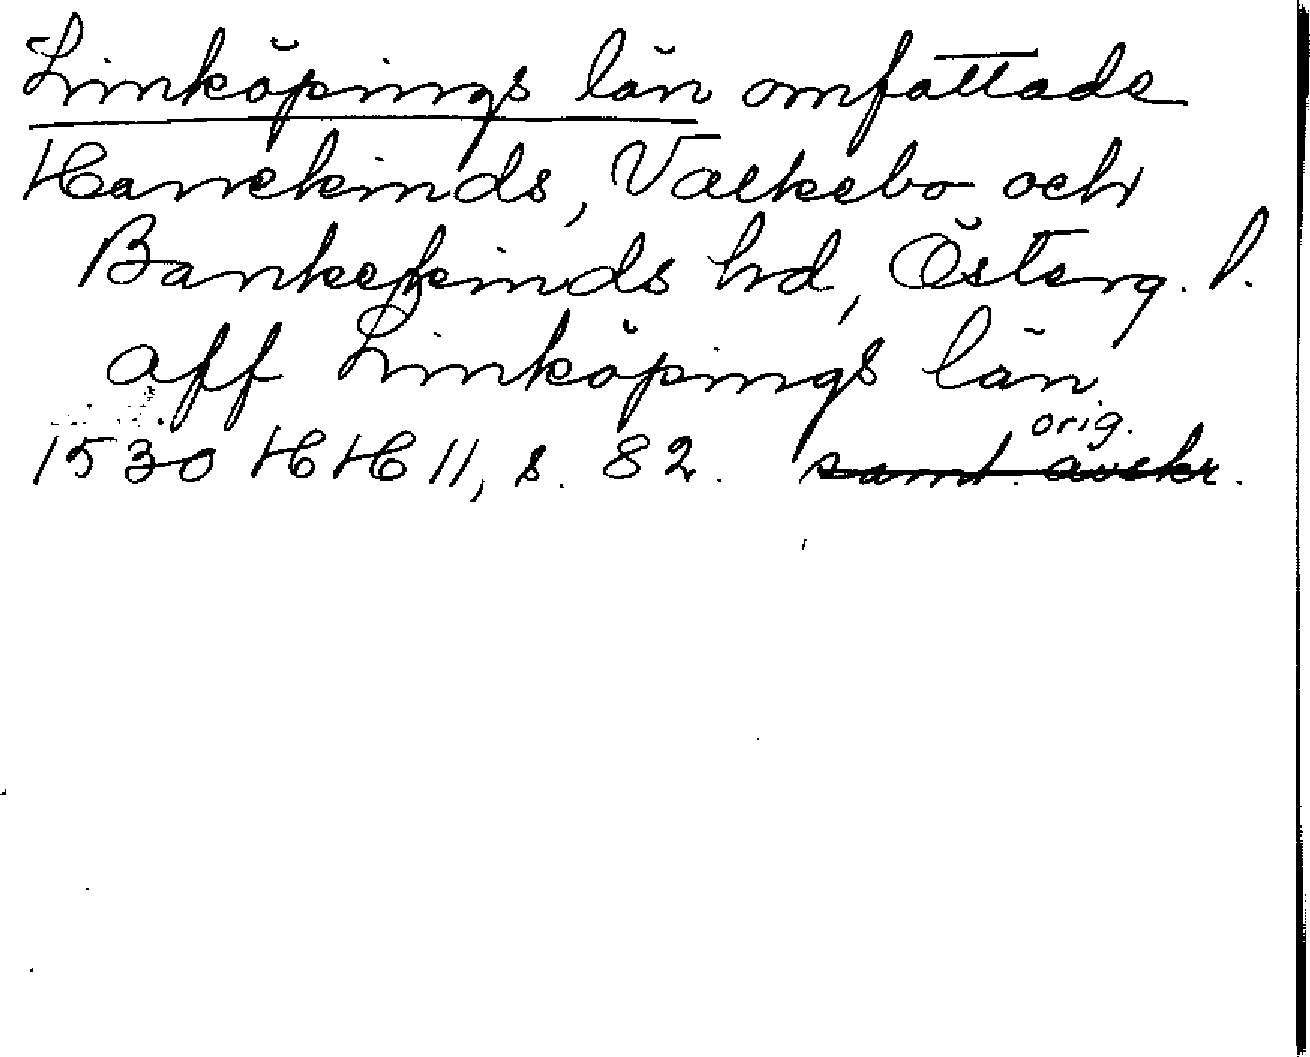 Linköpings län omfattade
Hanekinds, Valkebo och
Bankekinds hd, Österg. l.
aff Linköpings län
orig.
1530 HH 11, s. 82. samt. avskr.